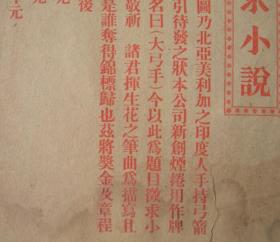 求小說
圖乃北亞美利加之印度人手持弓箭
引待發之狀本公司新創煙捲用作牌
名曰(大弓手)今以此為題目徵求小
敬祈 諸君揮生花之筆曲為描寫
是誰奪得錦標歸也茲將獎金及章程
後
元
元
十元